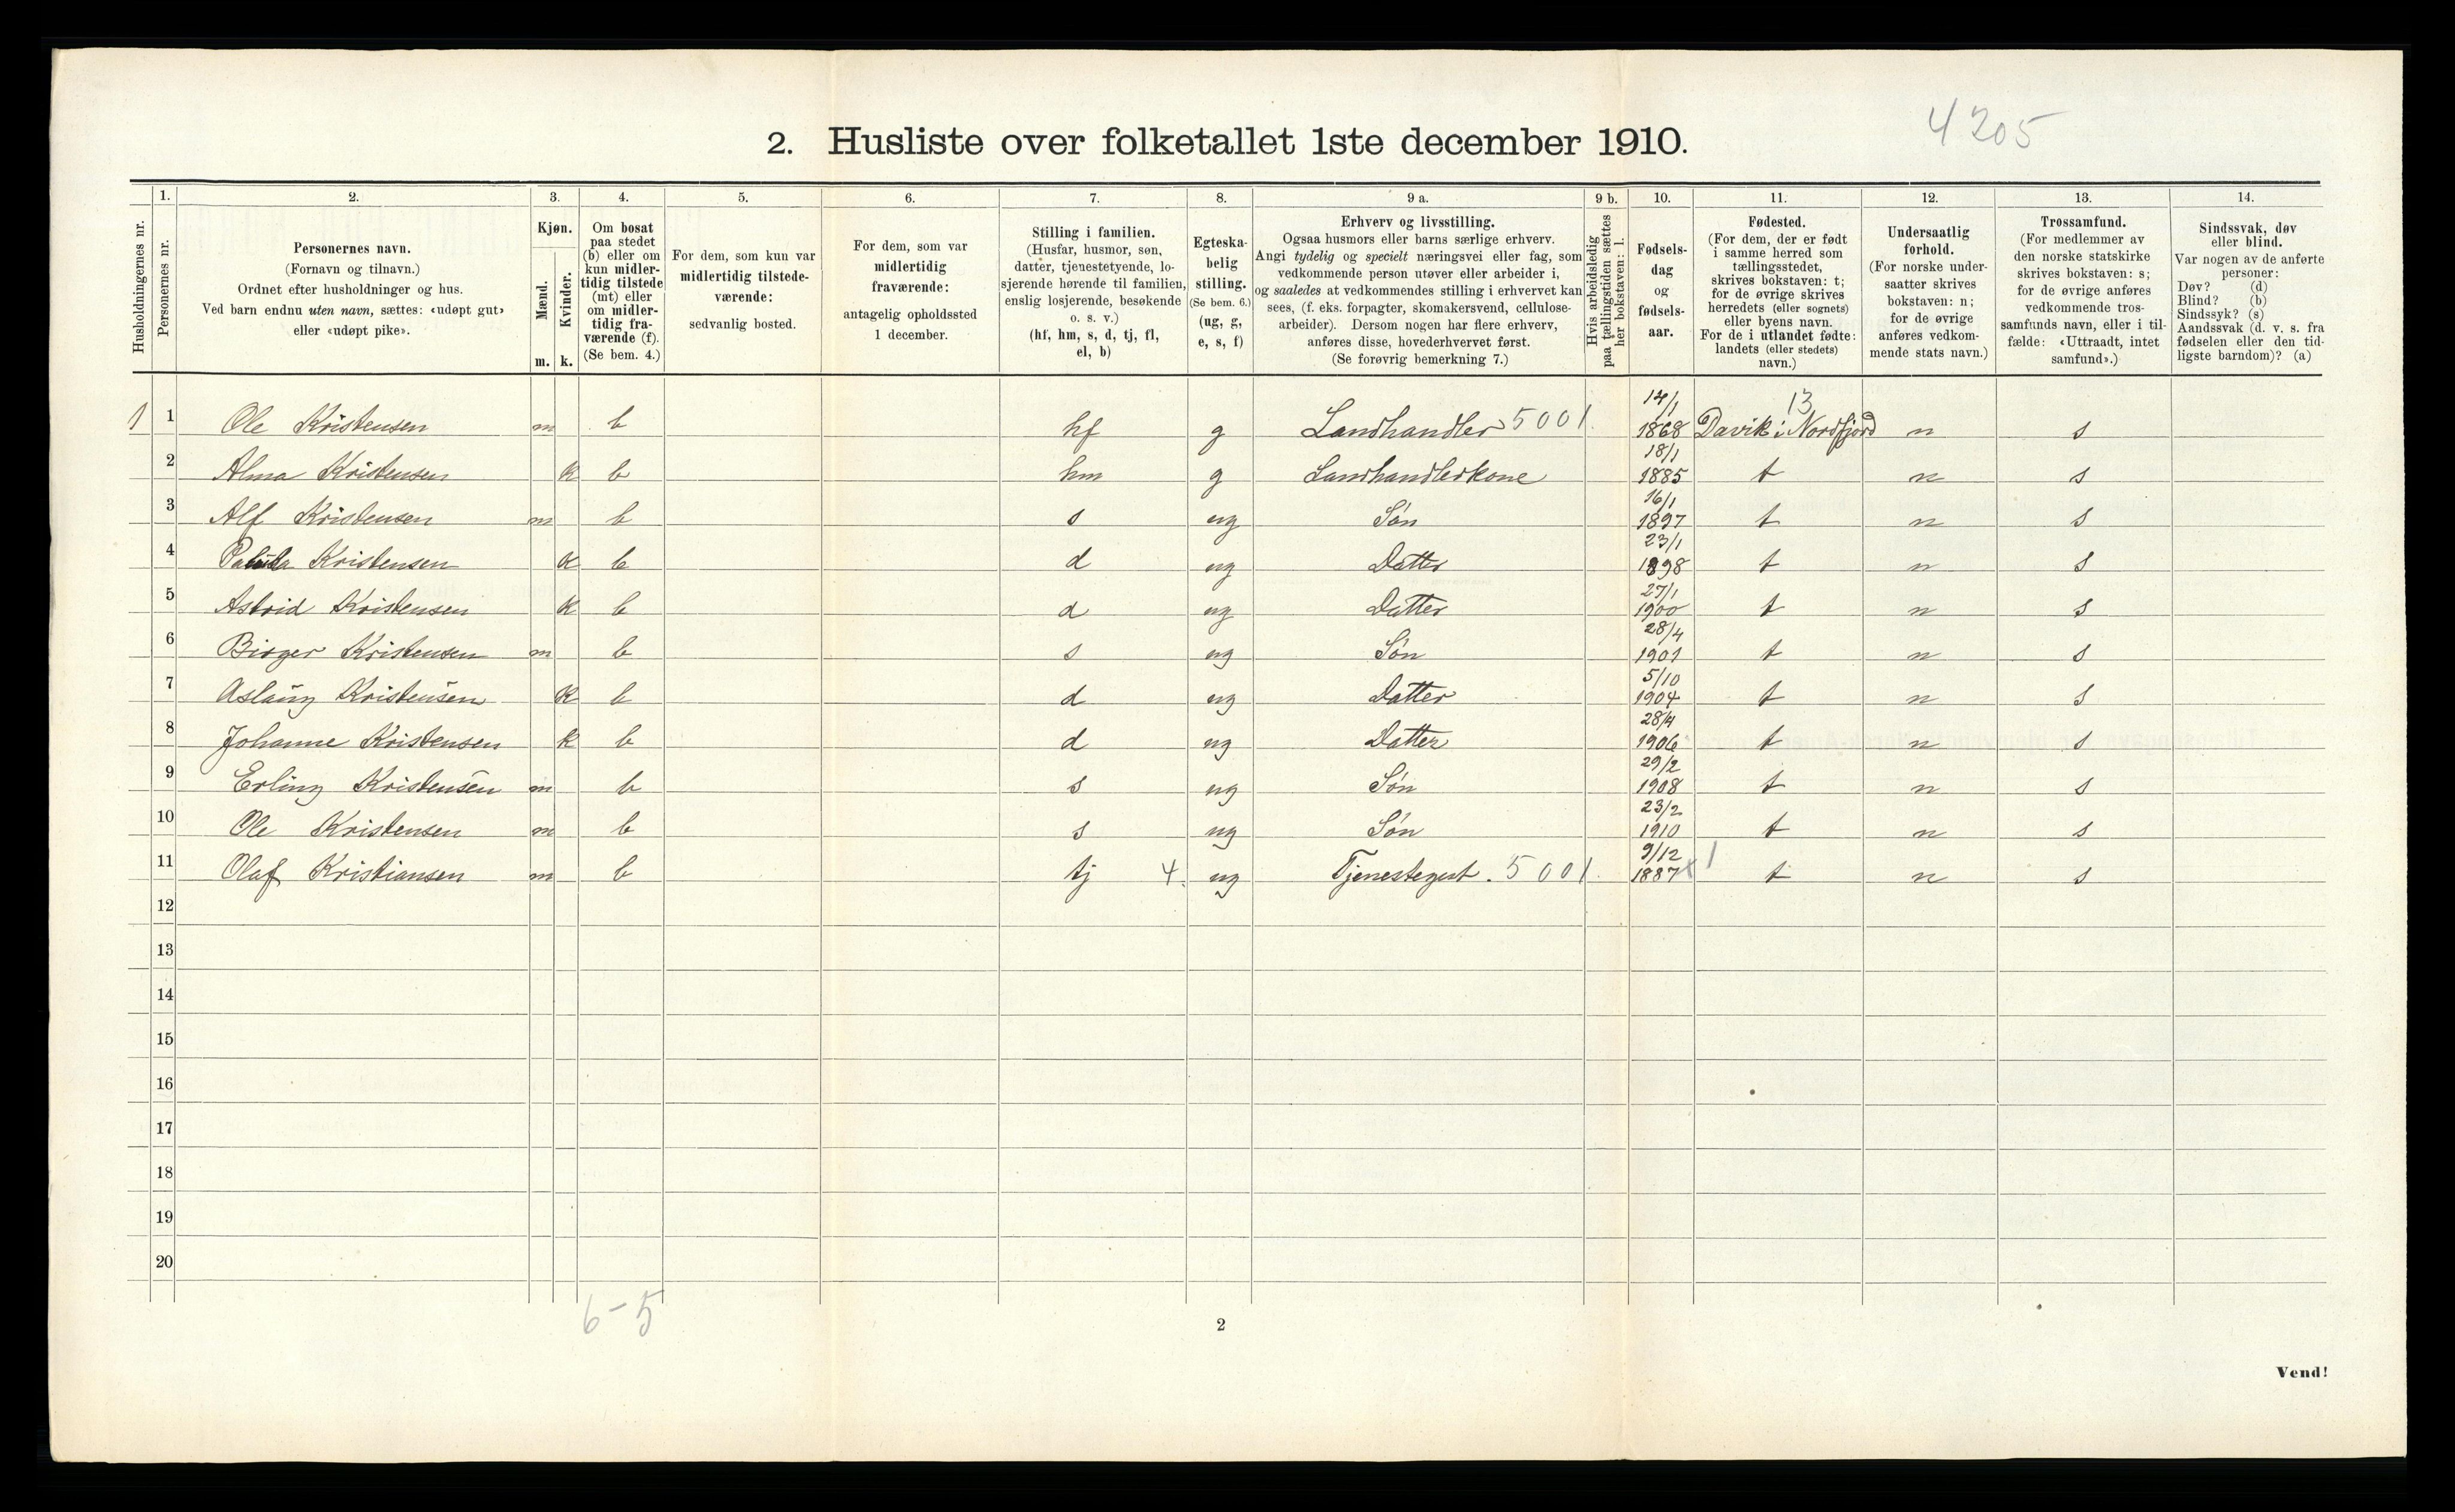 4205
2. Husliste over folketallet 1ste december 1910.
Husholdningernes nr.
1.
Personernes nr.
2.
Personernes navn.
(Fornavn og tilnavn.)
Ordnet efter husholdninger og hus.
Ved barn endnu uten navn, sættes: «udøpt gut»
eller «udøpt pike».
3.
Kjøn.
Mænd.
m.
Kvinder.
k.
4.
Om bosat
paa stedet
(b) eller om
kun midler-
tidig tilstede
(mt) eller
om midler-
tidig fra-
værende (f).
(Se bem. 4.)
5.
For dem, som kun var
midlertidig tilstede-
værende:
sedvanlig bosted.
6.
For dem, som var
midlertidig
fraværende:
antagelig opholdssted
1 december.
7.
Stilling i familien.
(Husfar, husmor, søn,
datter, tjenestetyende, lo-
sjerende hørende til familien,
enslig losjerende, besøkende
o. s. v.)
(hf, hm, s, d, tj, fl,
el, b)
8.
Egteska-
belig
stilling.
(Se bem. 6.)
(ug, g,
e, s, f)
9 a.
Erhverv og livsstilling.
Ogsaa husmors eller barns særlige erhverv.
Angi tydelig og specielt næringsvei eller fag, som
vedkommende person utøver eller arbeider i,
og saaledes at vedkommendes stilling i erhvervet kan
sees, (f. eks. forpagter, skomakersvend, cellulose-
arbeider). Dersom nogen har flere erhverv,
anføres disse, hovederhvervet først.
(Se forøvrig bemerkning 7.)
9 b.
Hvis arbeidsledig
paa tællingstiden sættes
her bokstaven: l.
10.
Fødsels-
dag
og
fødsels-
aar.
11.
Fødested.
(For dem, der er født
i samme herred som
tællingsstedet,
skrives bokstaven: t;
for de øvrige skrives
herredets (eller sognets)
eller byens navn.
For de i utlandet fødte:
landets (eller stedets)
navn.)
12.
Undersaatlig
forhold.
(For norske under-
saatter skrives
bokstaven: n;
for de øvrige
anføres vedkom-
mende stats navn.)
13.
Trossamfund.
(For medlemmer av
den norske statskirke
skrives bokstaven: s;
for de øvrige anføres
vedkommende tros-
samfunds navn, eller i til-
fælde: «Uttraadt, intet
samfund».)
14.
Sindssvak, døv
eller blind.
Var nogen av de anførte
personer:
Døv? (d)
Blind? (b)
Sindssyk? (s)
Aandssvak (d. v. s. fra
fødselen eller den tid-
ligste barndom)? (a)
1 1 Ole Kristensen m b hf g Landhandler 5001. 14/1 1868 13 Davik i Nordfjord n s
2 Alma Kristensen k b hm g Landhandlerkone 18/1 1885 t n s
3 Alf Kristensen m b s ug Søn 16/1 1897 t n s
4 Kristensen k b d ug Datter 23/1 1898 t n s
5 Astrid Kristensen k b d ug Datter 27/1 1900 t n s
6 Birger Kristensen m b s ug Søn 28/4 1901 t n s
7 Aslaug Kristensen k b d ug Datter 5/10 1904 t n s
8 Johanne Kristensen k b d ug Datter 28/4 1906 t n s
9 Erling Kristensen m b s ug Søn 29/2 1908 t n s
10 Ole Kristensen m b s ug Søn 23/2 1910 t n s
11 Olaf Kristiansen m b tj 4. ug Tjenestegut. 5001. 9/12 1887 x 1 t n s
12
13
14
15
16
17
18
19
20
6-5
2
Vend!